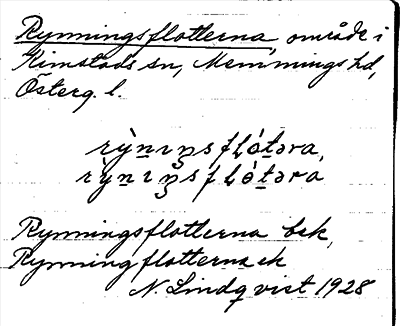 Rynningsflotterna, område i
Kimstads sn, Memmings hd,
Österg. l.
rỳnıŋsflót̠əra,
rỳnıŋsflót̠əra
Rynningsflotterna bek,
Rynningflotterna ek
N. Lindqvist 1928